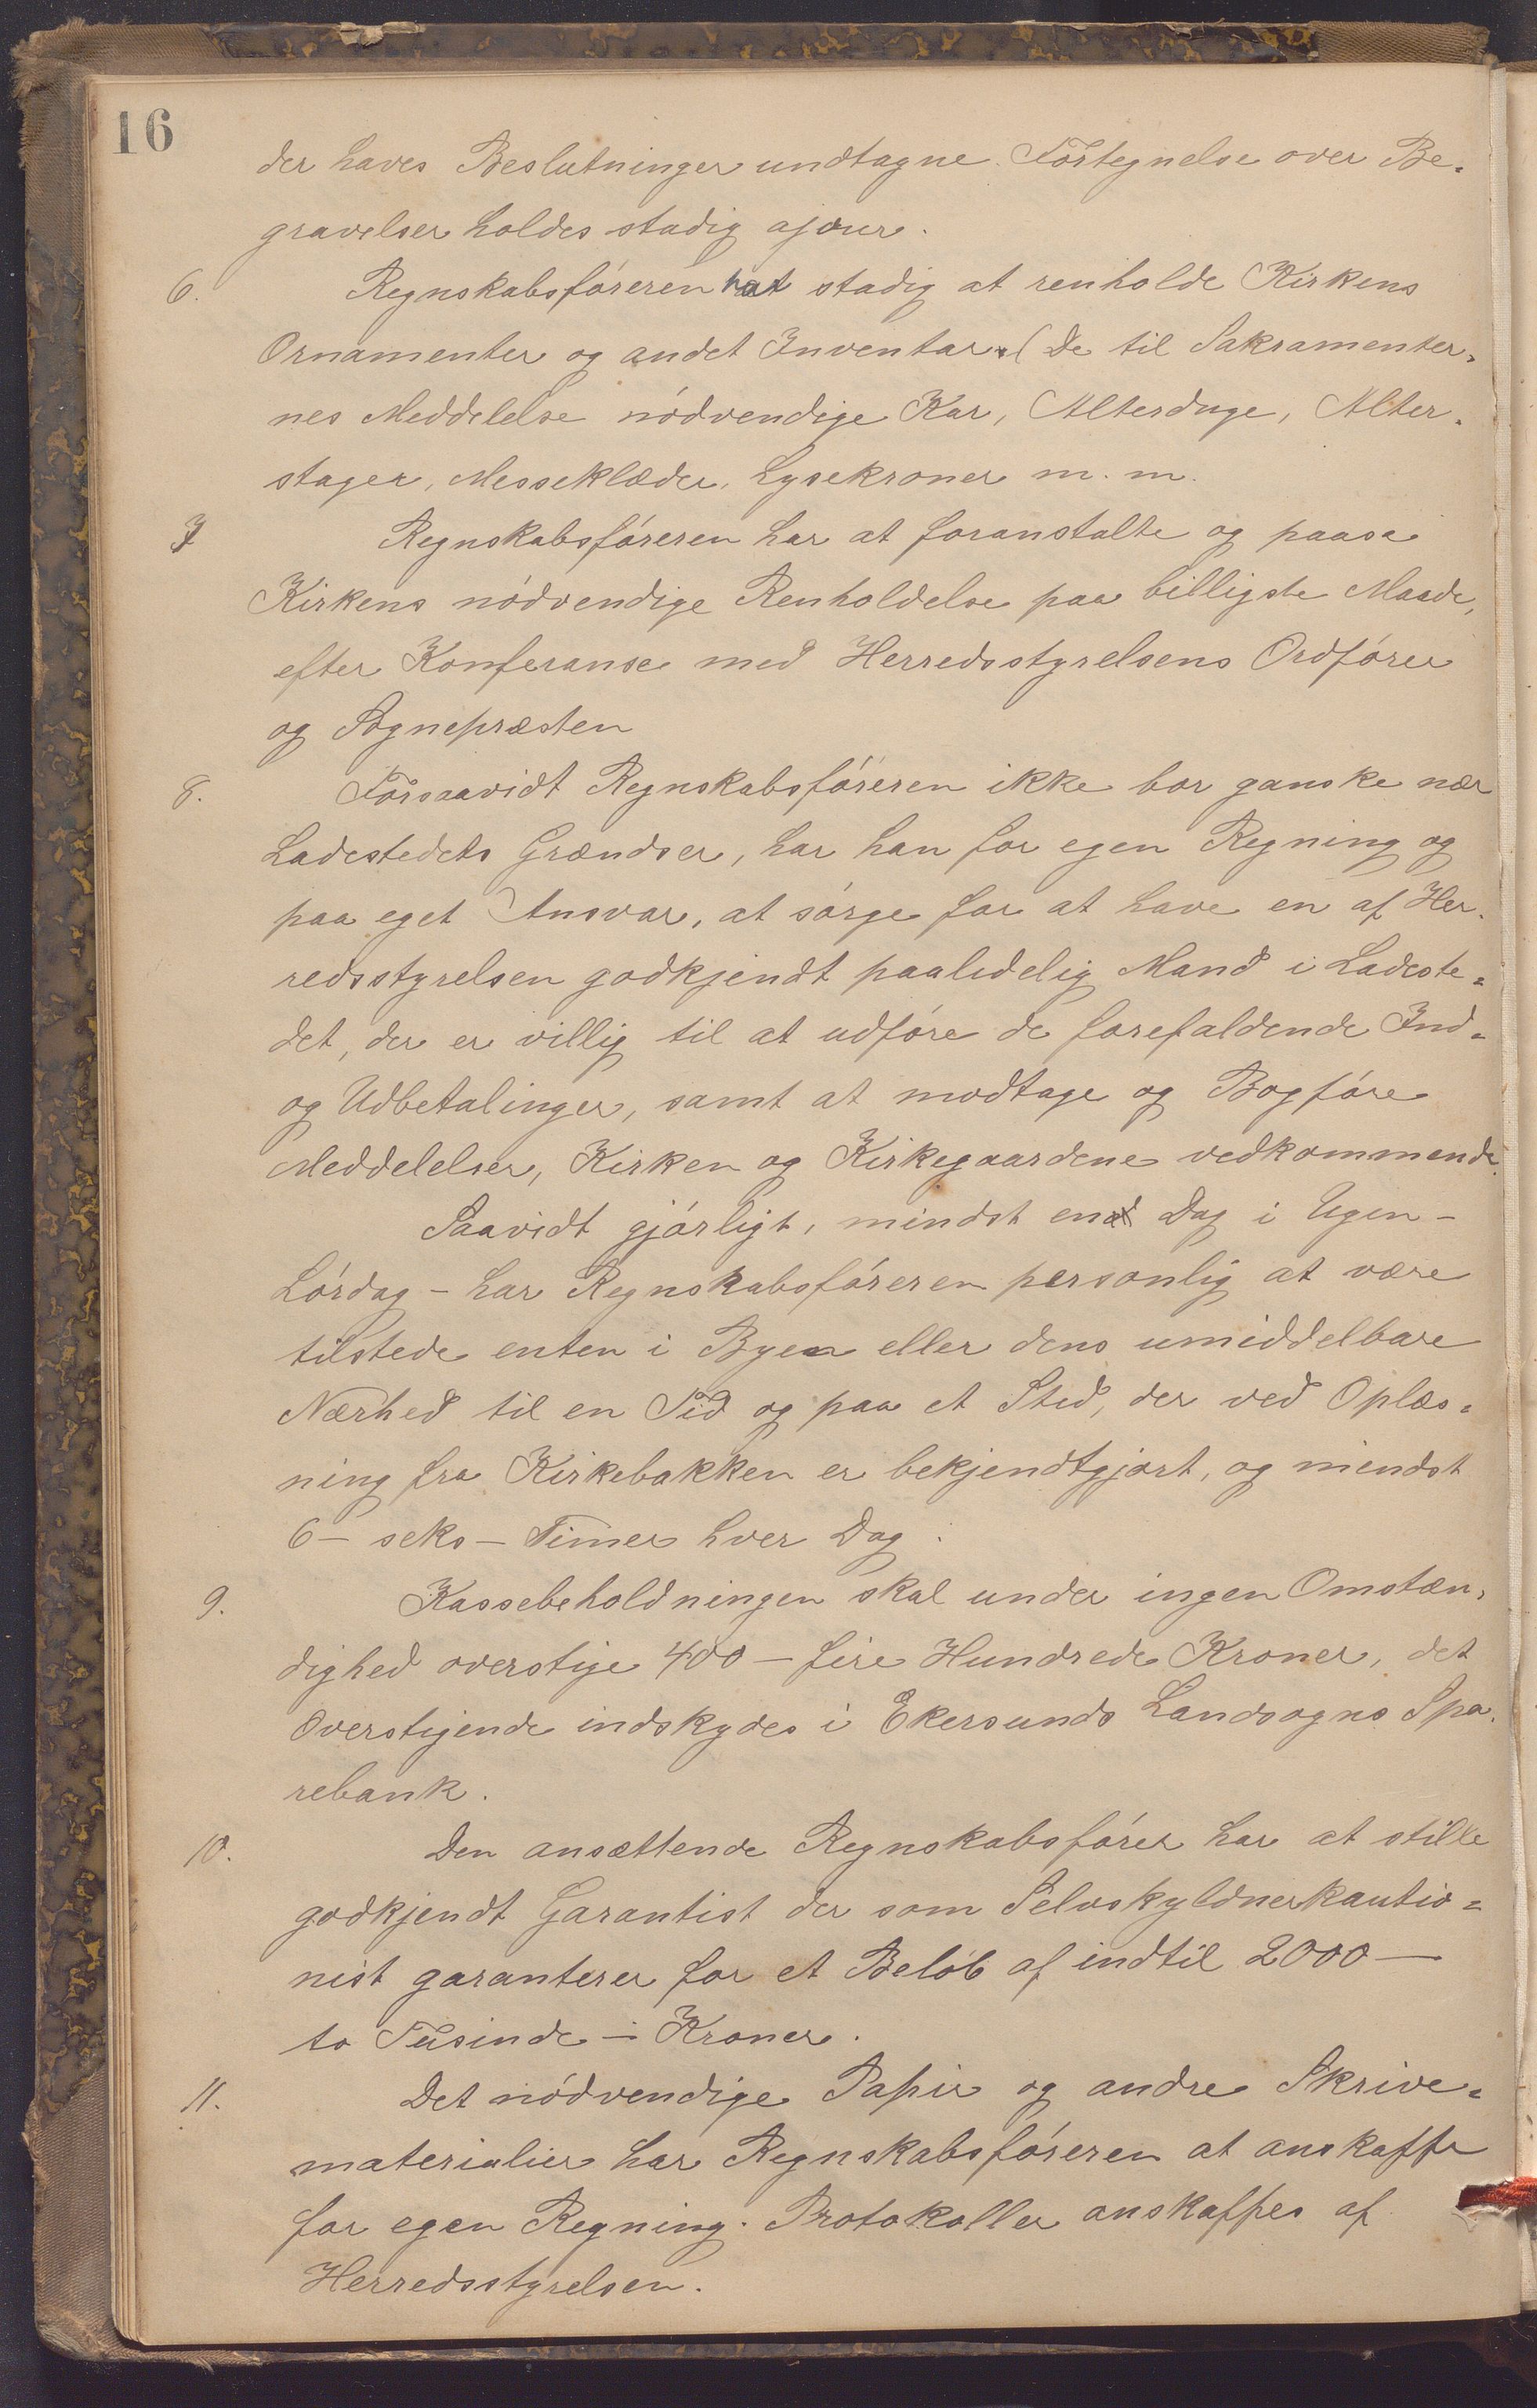 16
der haves Beslutninger undtagne. Fortegnelse over Be-
gravelser holdes stadig ajour.
6. Regnskabsføreren hat stadig at renholde Kirkens
Ornamenter og andet Inventar. (De til Sakramenter-
nes Meddelelse nødvendige Kar, Alterduge, Alter-
stager, Messeklæder, Lysekroner m. m.
7 Regnskabsføreren har at foranstalte og paase
Kirkens nødvendige Renholdelse paa billigste Maade,
efter Konferanse med Herredsstyrelsens Ordfører
og Sognepræsten
8. Forsaavidt Regnskabsføreren ikke bor ganske nær
Ladestedets Grændser, har han for egen Regning og
paa eget Ansvar, at sørge for at have en af Her-
redsstyrelsen godkjendt paalidelig Mand i Ladeste-
det, der er villig til at udføre de forefaldende Ind-
og Udbetalinger, samt at modtage og Bogføre
Meddelelser, Kirken og Kirkegaardene vedkommende.
Saavidt gjørligt, mindst en Dag i Ugen -
Lørdag - har Regnskabsføreren personlig at være
tilstede enten i Byen eller dens umiddelbare
Nærhed til en Tid og paa et Sted, der ved Oplæs-
ning fra Kirkebakken er bekjendtgjort, og mindst
6 - seks - Timer hver Dag.
9. Kassebeholdningen skal under ingen Omstæn-
dighed overstige 400 - fire Hundrede Kroner, det
Overstigende indskydes i Ekersunds Landsogns Spa-
rebank.
10. Den ansættende Regnskabsfører har at stille
godkjendt Garantist der som Selvskyldnerkautio-
nist garanterer for et Beløb af indtil 2000 -
to Tusinde - Kroner.
11. Det nødvendige Papir og andre Skrive-
materialier har Regnskabsføreren at anskaffe
for egen Regning. Protokoller anskaffes af
Herredsstyrelsen.